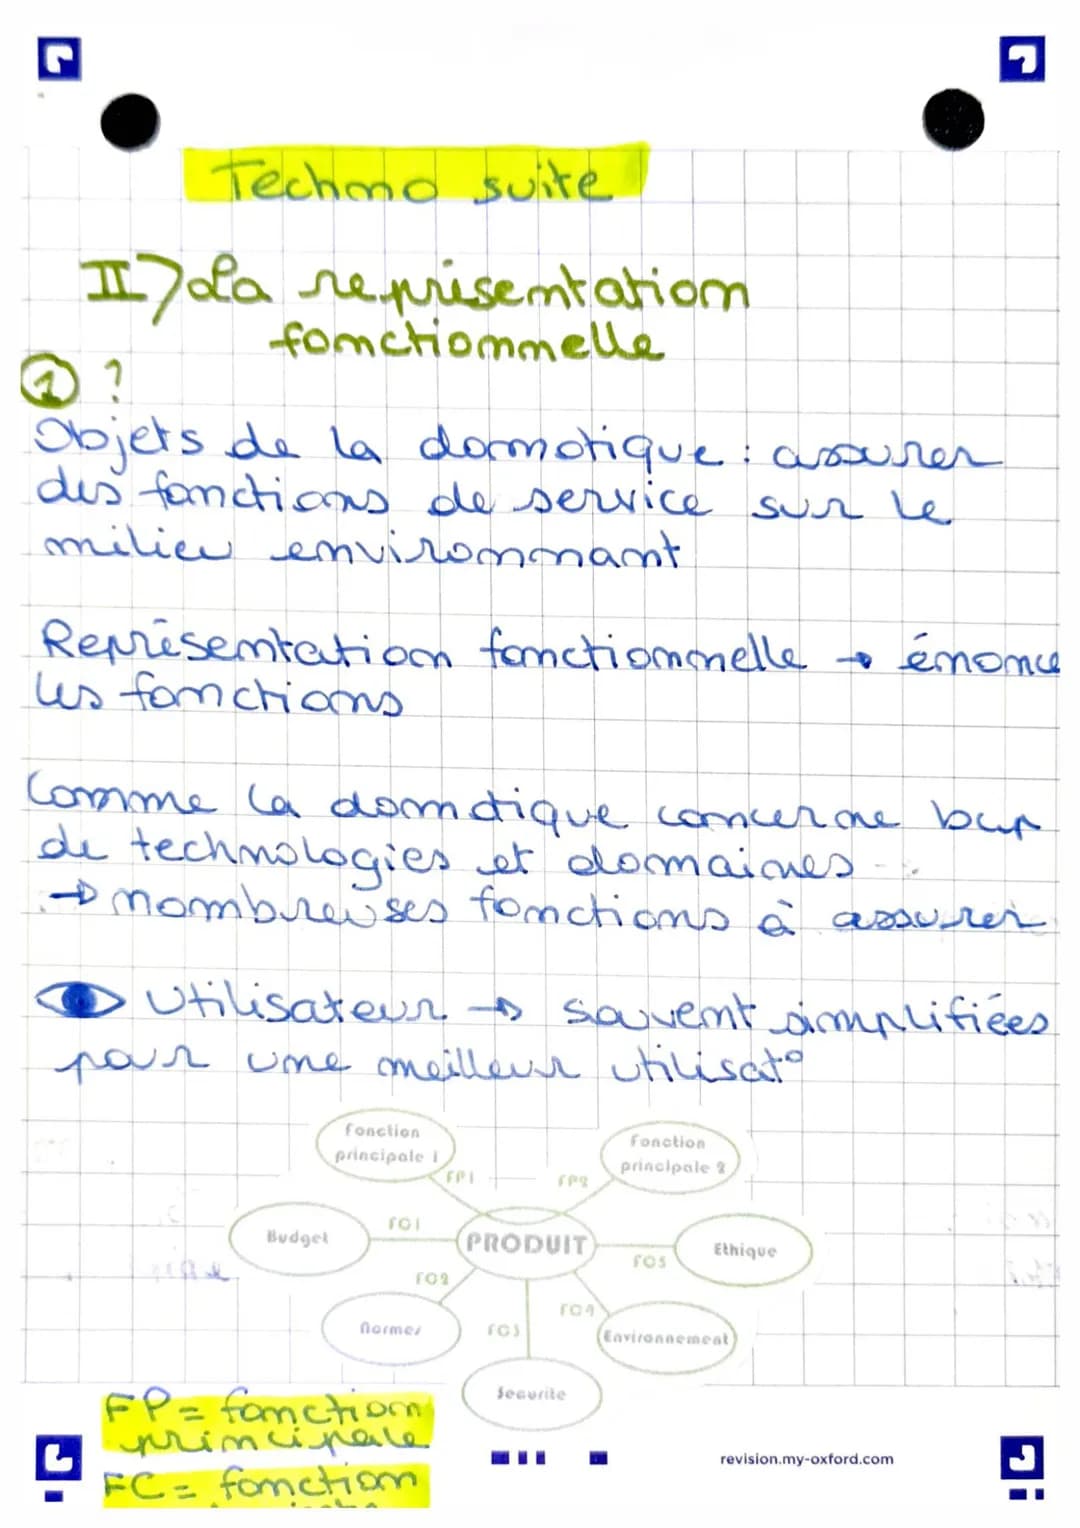 Techno suite
II) La représentation
fonctionnelle
1 ?
Objets de la domotique : assurer
des fonctions de service sur le
milieu environnant
Représentation fonctionnelle → énonce
les fonctions
Comme la domotique concerne bcp
de technologies et domaines
→ nombreuses fonctions à assurer
Utilisateur → souvent simplifiées
pour une meilleur utilisat°
Fonction
principale 1
Fonction
principale 2
FP1
FP2
Budget
FC1
PRODUIT
FC5
Ethique
FC2
Normes
FC3
FC4
Environnement
Securite
FP = fonction
principale
FC = fonction
revision.my-oxford.com